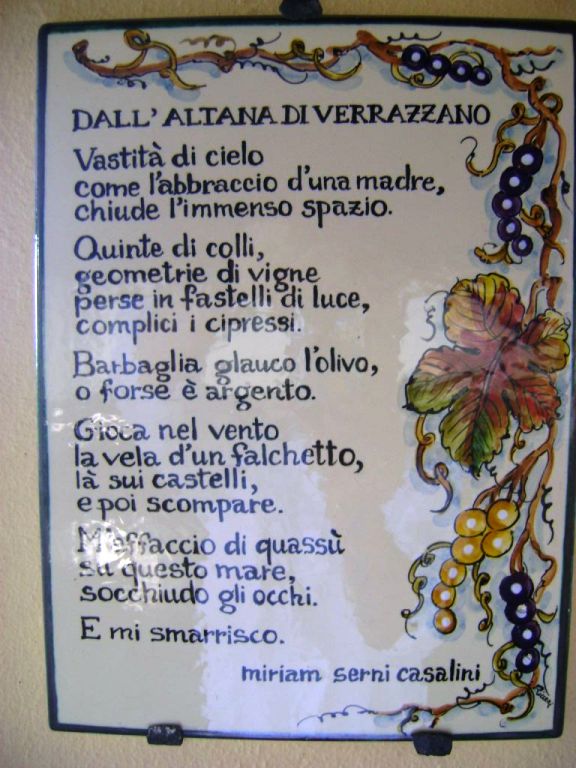 DALL'ALTANA DI VERRAZZANO
Vastità di cielo
come l'abbraccio d'una madre,
chiude l'immenso spazio.
Quinte di colli,
geometrie di vigne
perse in fastelli di luce,
complici i cipressi.
Barbaglia glauco l'olivo,
o forse è argento.
Gioca nel vento
la vela d'un falchetto,
là sui castelli,
e poi scompare.
M'affaccio di quassù
su questo mare,
socchiudo gli occhi.
E mi smarrisco.
miriam serni casalini